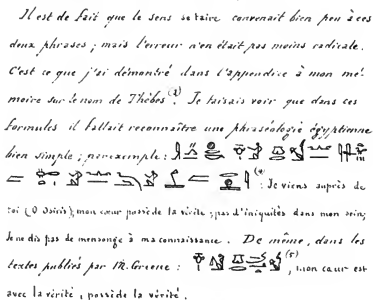 Il est de fait que le sens se taire convenait bien peu à ces
deux phrases ; mais l'erreur n'en était pas moins radicale.
C'est ce que j'ai démontré dans l'appendice à mon mé-
moire sur le nom de Thèbes. Je faisais voir que dans ces
formules il fallait reconnaître une phraséologie égyptienne
bien simple ; par exemple :
(4) : Je viens auprès de
toi (O Osiris), mon cœur possède la vérité ; pas d'iniquités dans mon sein;
Je ne dis pas de mensonge à ma connaissance. De même, dans les
textes publiés par M. Greene : (5), mon cœur est
avec la vérité, possède la vérité.